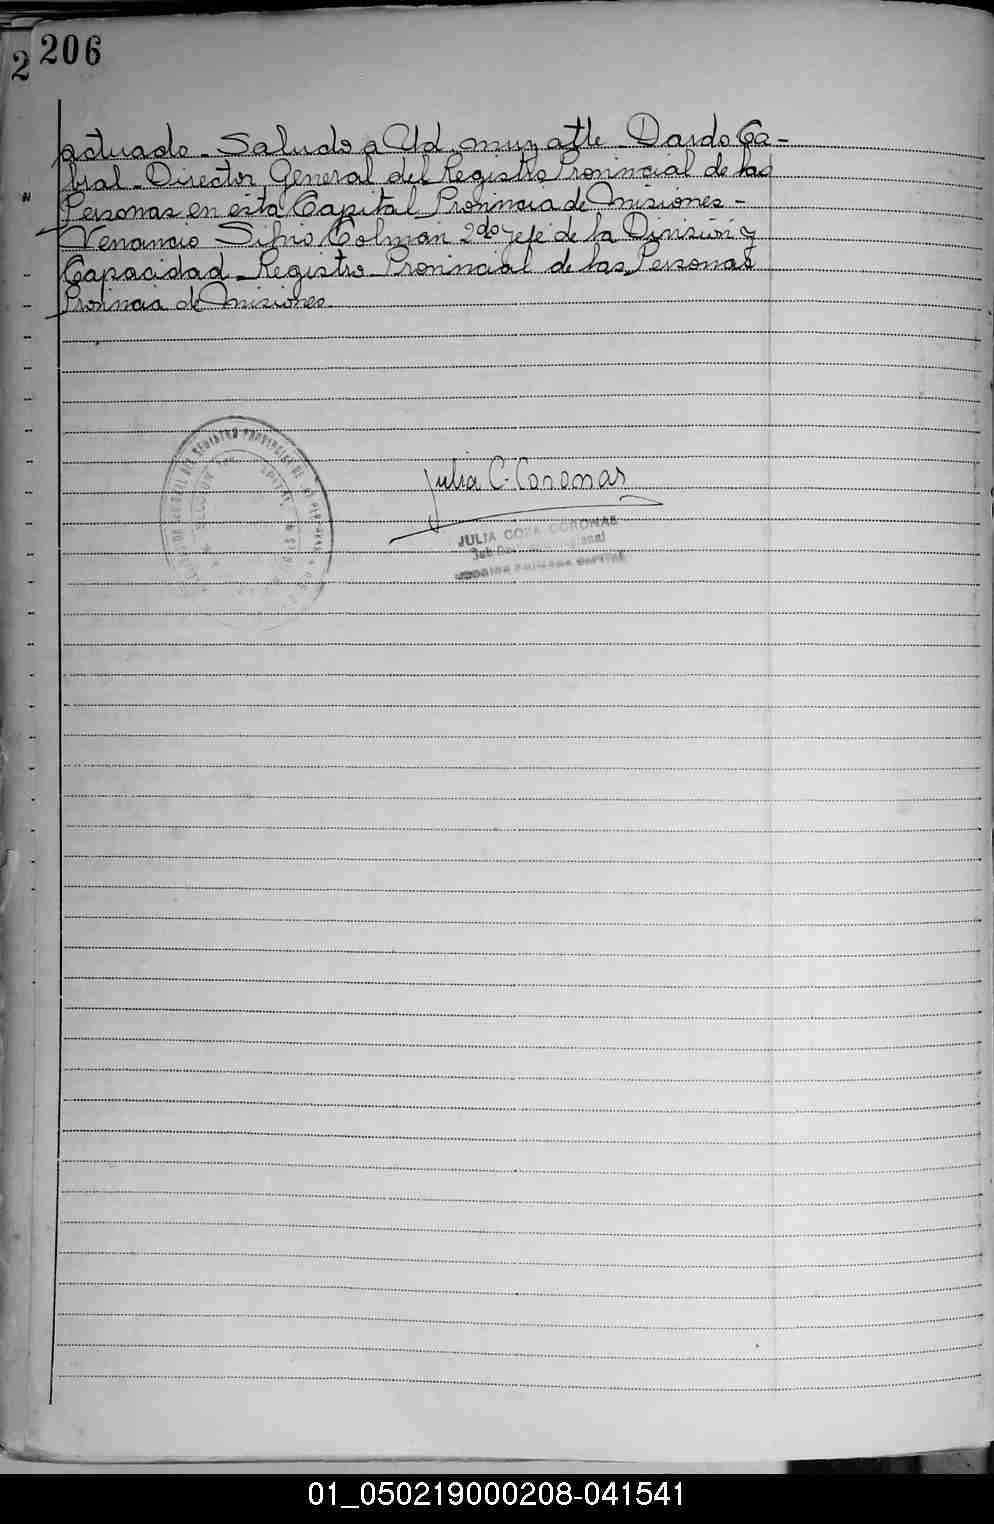 206
2
actuado - Saludo a Ud. muy atte - Dardo Ca-
bral - Director General del Registro Provincial de las
Personas en esta Capital Provincia de Misiones -
Venancio Silvio Colman 2do Jefe de la División y
Capacidad - Registro Provincial de las Personas
Provincia de Misiones
Julia C. Coronas
REGISTRO PROVINCIAL DE
JULIA CORONAS
01_050219000208-041541